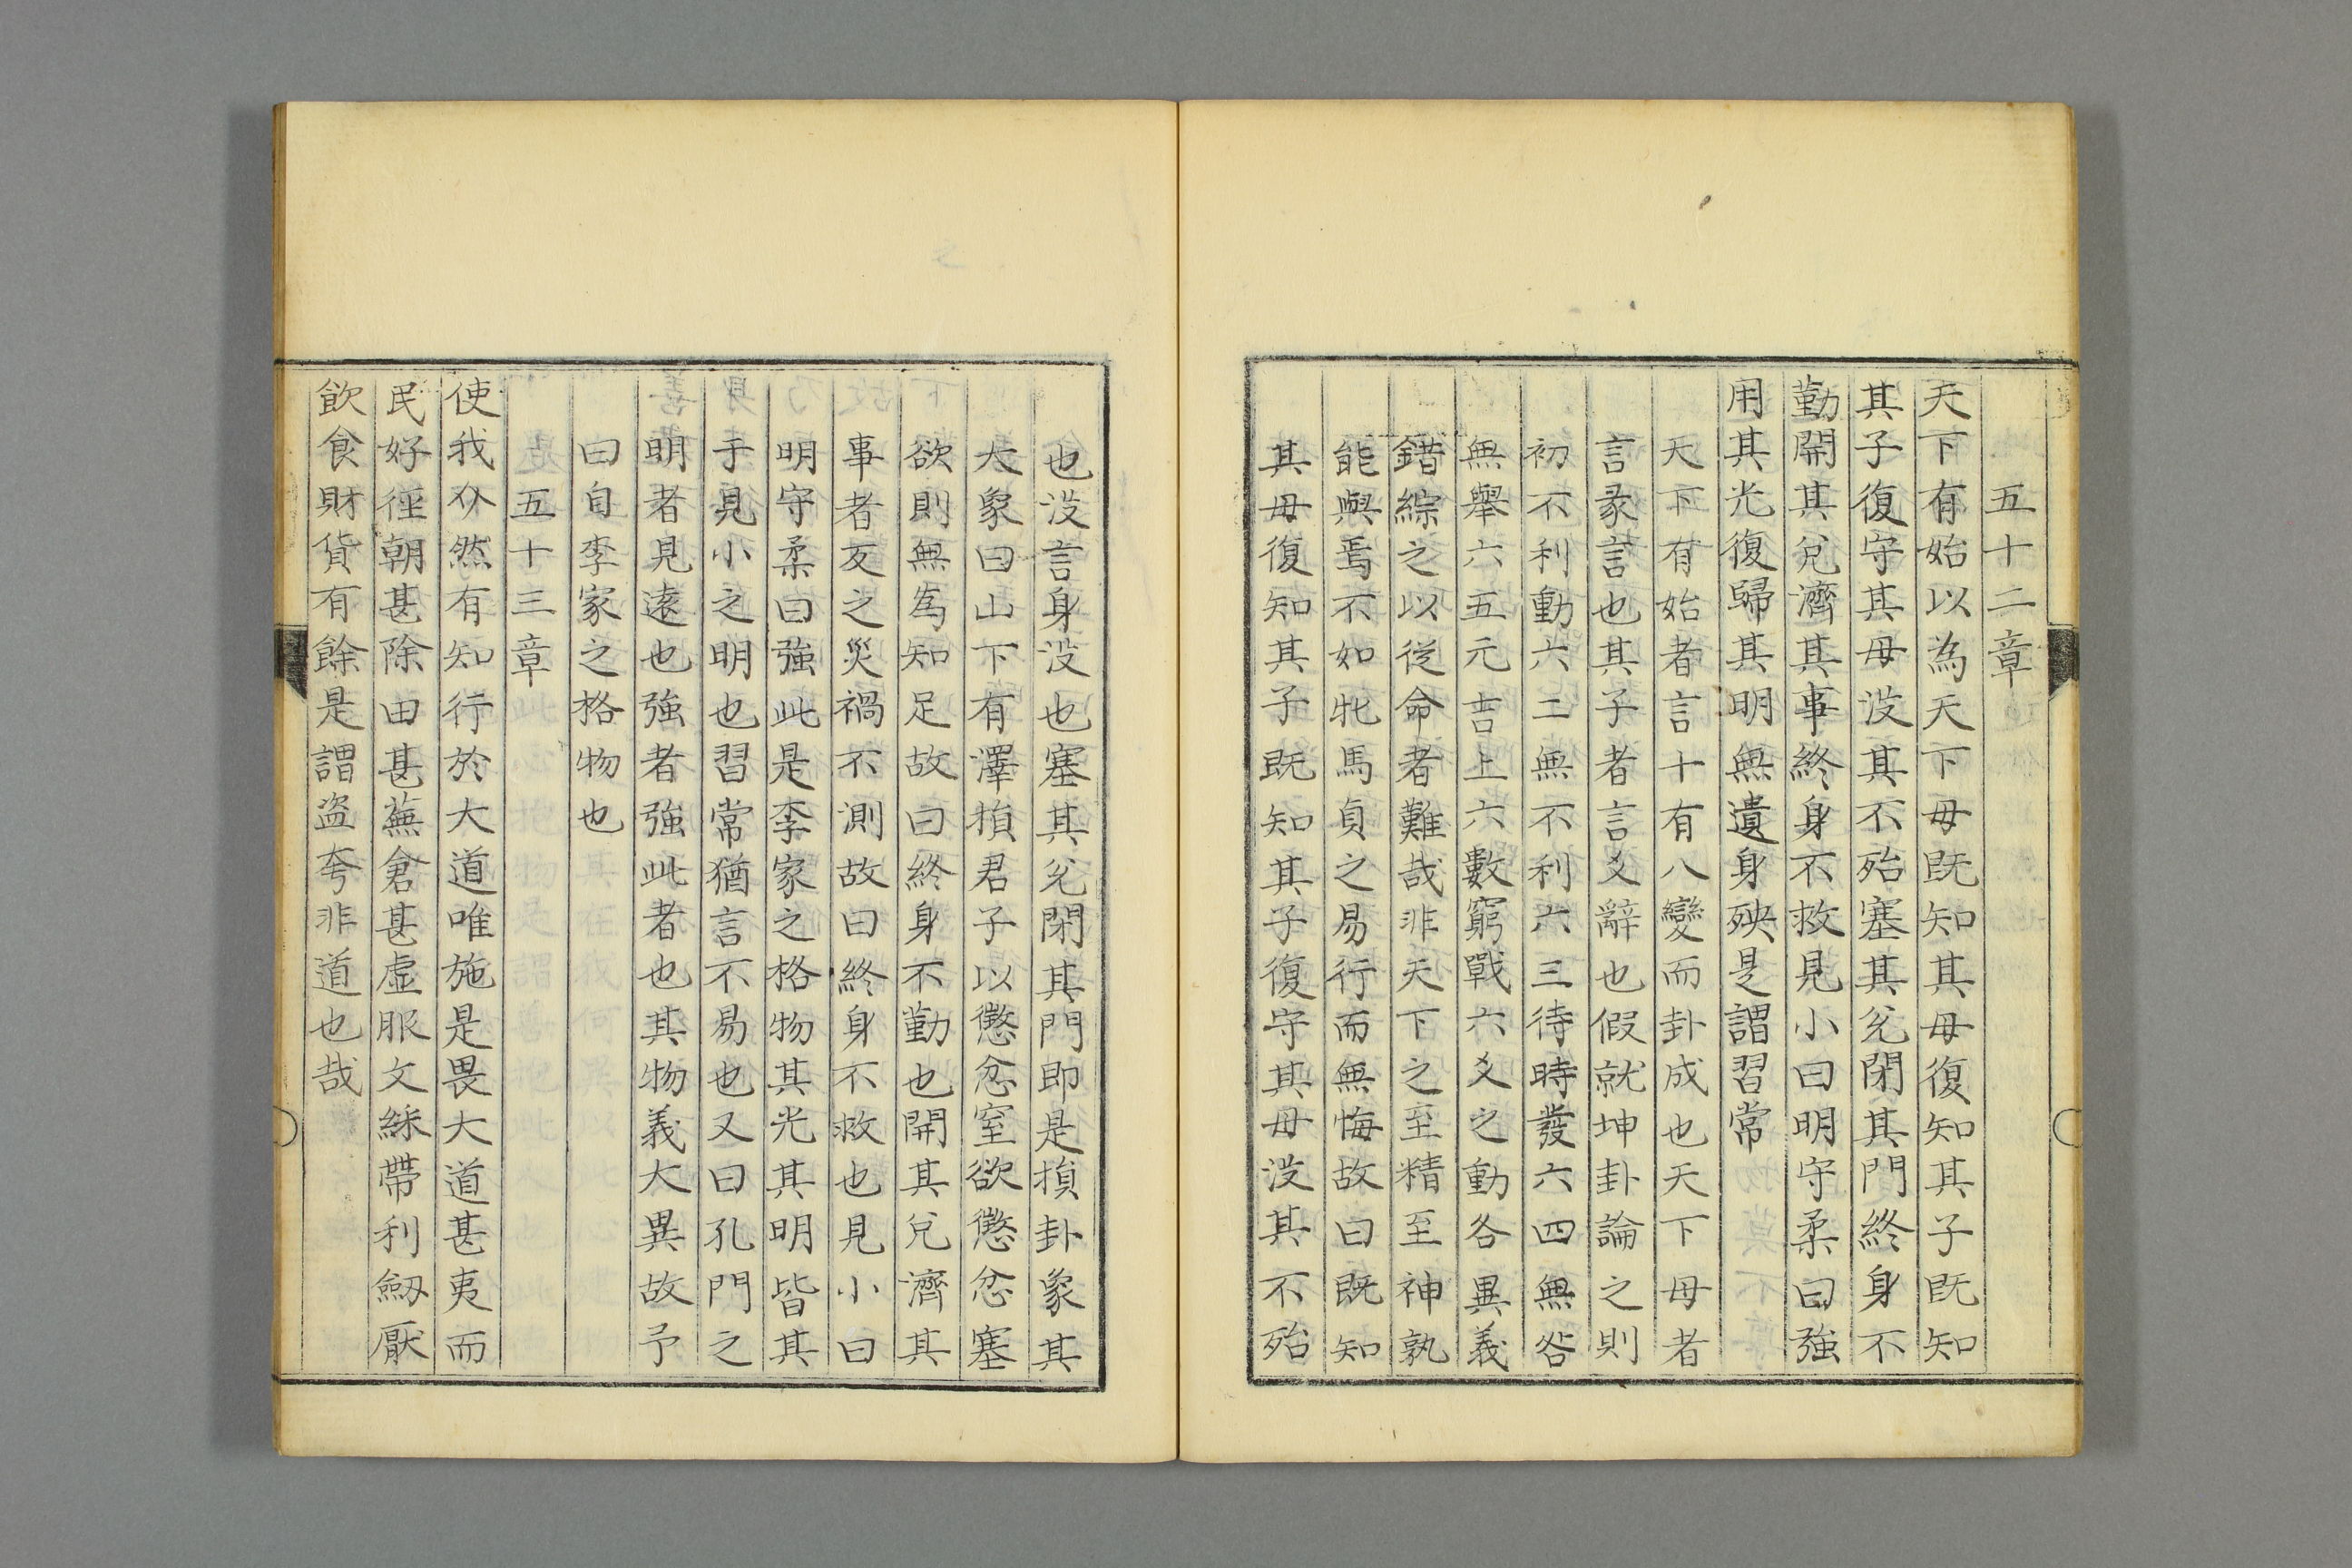 五十二章
天下有始以為天下母既知其母復知其子既知
其子復守其母没其不殆塞其兊閉其門終身不
勤開其兊濟其事終身不救見小曰明守柔曰強
用其光復歸其明無遺身殃是謂習常
天下有始者言十有八變而卦成也天下母者
言彖言也其子者言爻辭也假就坤卦論之則
初不利動六二無不利六三待時發六四無咎
無舉六五元吉上六數窮戰六爻之動各異義
錯綜之以從命者難哉非天下之至精至神孰
能與焉不如牝馬貞之易行而無悔故曰既知
其母復知其子既知其子復守其母没其不殆
也没言身没也塞其兊閉其門即是損卦象其
大象曰山下有澤損君子以懲忿窒欲懲忿塞
欲則無為知足故曰終身不勤也開其兊濟其
事者反之災禍不測故曰終身不救也見小曰
明守柔曰強此是李家之格物其光其明皆其
手見小之明也習常猶言不易也又曰孔門之
明者見遠也強者強此者也其物義大異故予
曰自李家之格物也
五十三章
使我介然有知行於大道唯施是畏大道甚夷而
民好徑朝甚除田甚蕪倉甚虛服文綵帶利劒厭
飲食財貨有餘是謂盗夸非道也哉